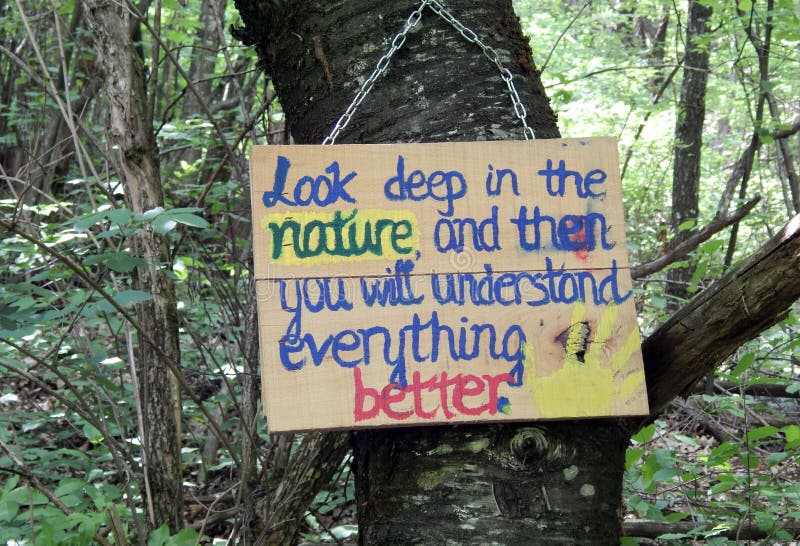 Look deep in the
nature, and then
you will understand
everything
better.